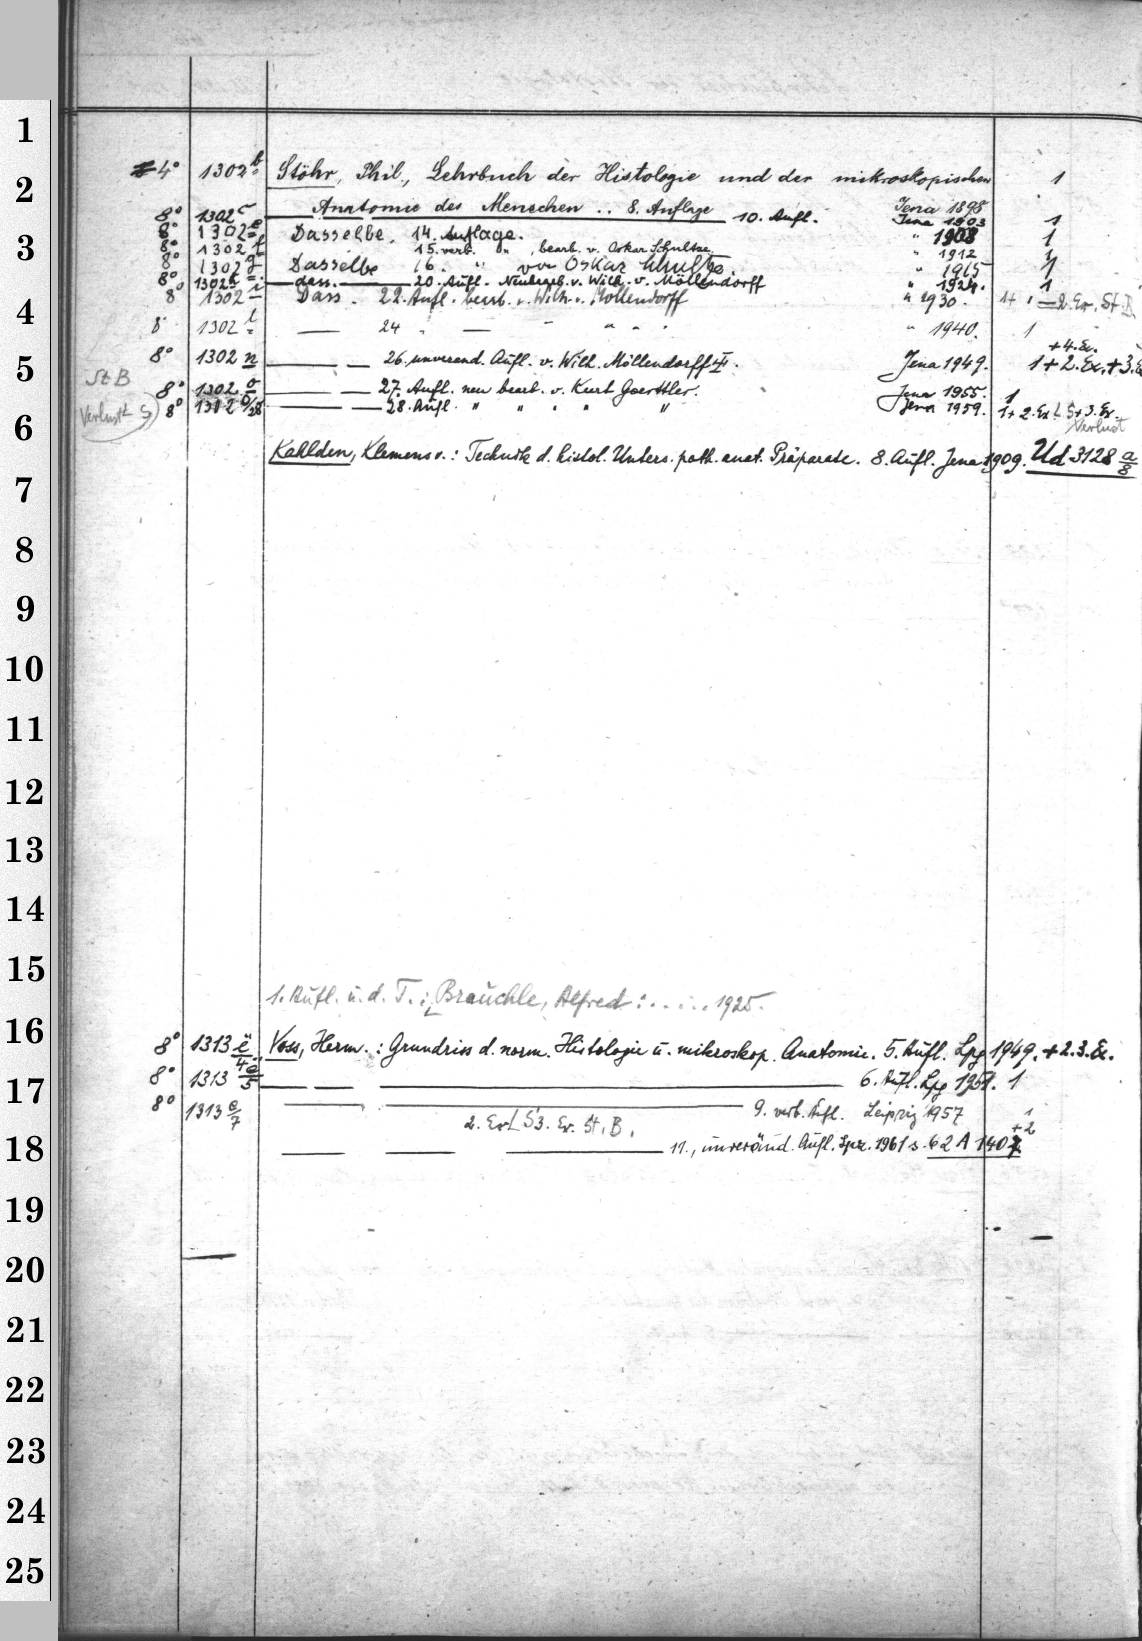 1
4° 1302 b Stöhr, Phil., Lehrbuch der Histologie und der mikroskopischen 1
2
Anatomie des Menschen .. 8. Auflage Jena 1898
8° 1302 c 10. Aufl. Jena 1903 1
8° 1302 e Dasselbe. 14. Auflage. " 1908 1
3
8° 1302 f 15. verb. " , bearb. v. Oskar Schultze " 1912 1
8° 1302 g Dasselbe 16. " von Oskar Schultze. " 1915 1
8° 1302 h dass. 20. Aufl. Neubearb. v. Wilh. v. Möllendorff " 1924. 1
8° 1302 i Dass. 22. Aufl. bearb. v. Wilh. v. Möllendorff " 1930. 1+ 2. Ex. St B
4
8° 1302 l — 24 " — " " " " " 1940. 1
+4. Ex.
8° 1302 n — 26. unveränd. Aufl. v. Wilh. Möllendorff †. Jena 1949. 1+2. Ex. +3. Ex
5
St B
8° 1302 o — 27. Aufl. neu bearb. v. Kurt Goerttler. Jena 1955. 1
Verlust L S 8° 1302 o/28 — 28. Aufl. " " " " " Jena 1959. 1+2. Ex L S+3. Ex.
Verlust
6
Kahlden, Klemens v.: Technik d. histol. Unters. path. anat. Präparate. 8. Aufl. Jena 1909. Ud 3128 a/8
7
8
9
10
11
12
13
14
15
1. Aufl. u. d. T.: Bräuchle, Alfred: ..... 1925.
16
8° 1313 e Voss, Herm.: Grundriss d. norm. Histologie u. mikroskop. Anatomie. 5. Aufl. Lpg 1949. +2.3. Ex.
8° 1313 e/5 — — — 6. Aufl. Lpg 1951. 1
17
8° 1313 e/7 — — 9. verb. Aufl. Leipzig 1957 1
2. Ex L S 3. Ex. St. B. +2
18
— — — 11., unveränd. Aufl. Lpz. 1961 s. 62 A 1407
19
20
21
22
23
24
25